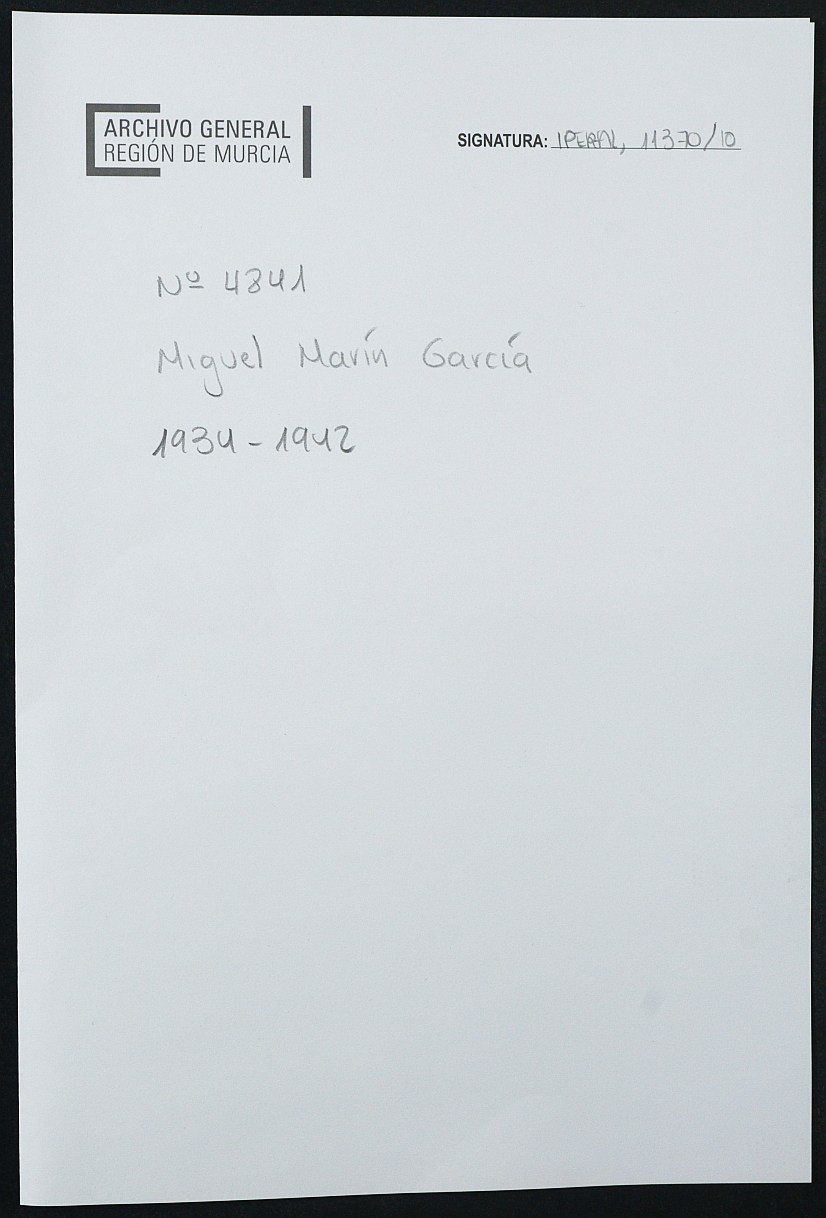 ARCHIVO GENERAL
REGIÓN DE MURCIA
SIGNATURA: IPERAL, 11370/10
Nº 4841
Miguel Marín García
1934 - 1942